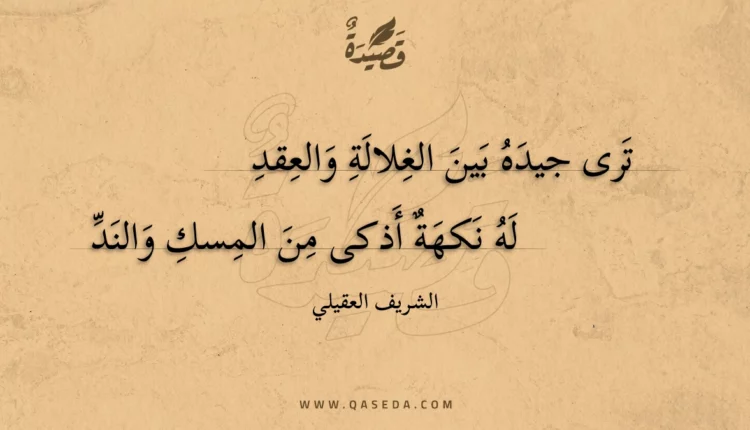 قَصِيدَةٌ
تَرى جيدَهُ بَينَ الغِلالَةِ وَالعِقدِ
لَهُ نَكهَةٌ أَذكى مِنَ المِسكِ وَالنَدِّ
الشريف العقيلي
WWW.QASEDA.COM